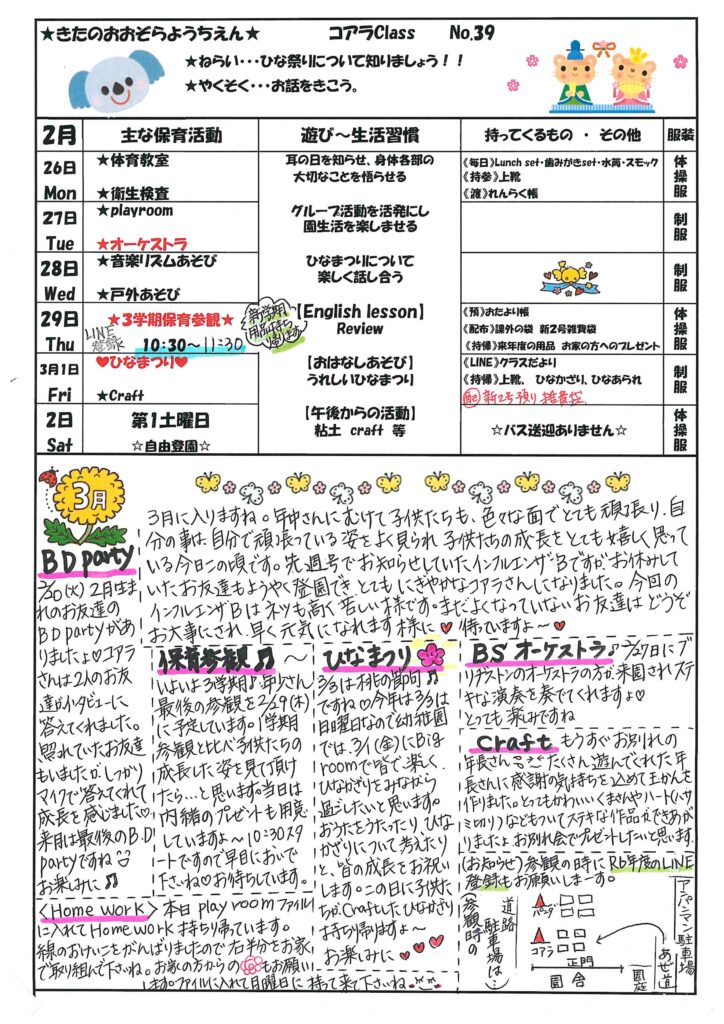 ★きたのおおぞらようちえん★ コアラClass No.39
★ねらい・・・ひな祭りについて知りましょう！！
★やくそく・・・お話をきこう。
2月 主な保育活動 遊び～生活習慣 持ってくるもの ・ その他 服装
26日 Mon
★体育教室
★衛生検査
耳の日を知らせ、身体各部の
大切なことを悟らせる
《毎日》Lunch set・歯みがきset・水筒・スモック
《持参》上靴
《渡》れんらく帳
体操服
27日 Tue
★playroom
★オーケストラ
グループ活動を活発にし
園生活を楽しませる
制服
28日 Wed
★音楽リズムあそび
★戸外あそび
ひなまつりについて
楽しく話し合う
制服
29日 Thu
★3学期保育参観★
LINE登録
10:30～11:30
新学期
用品持ち
帰ります
【English lesson】
Review
《預》おたより帳
《配布》課外の袋 新2号雑費袋
《持帰》来年度の用品 お家の方へのプレゼント
体操服
3月1日 Fri
♥ひなまつり♥
★Craft
【おはなしあそび】
うれしいひなまつり
《LINE》クラスだより
《持帰》上靴、 ひなかざり、ひなあられ
配 新2号預り 雑費袋
制服
2日 Sat
第1土曜日
☆自由登園☆
【午後からの活動】
粘土 craft 等
☆バス送迎ありません☆
体操服
3月
3月に入りますね。年中さんにむけて子供たちも、色々な面でとても頑張り、自
分の事は自分で頑張っている姿をよく見られ子供たちの成長をとても嬉しく思って
いる今日この頃です。先週号でお知らせしていたインフルエンザBですがお休みして
いたお友達もようやく登園できとてもにぎやかなコアラさんになりました。今回の
インフルエンザBはネツも高く苦しい様です。まだよくなっていないお友達はどうぞ
お大事にされ、早く元気になれます様に♥待っていますよ～♥
BD party
2/20(火)2月生ま
れのお友達の
BD partyがあ
りましたよ♡コアラ
さんは2人のお友
達がインタビューに
答えてくれました。
照れていたお友達
もいましたがしっかり
マイクで答えてくれて
成長を感じました♡
来月は最後のB.D
partyですね
お楽しみに♫
保育参観♫～
いよいよ3学期♪年少さん
最後の参観を2/29(木)
に予定しています。1学期
参観と比べ子供たちの
成長した姿を見て頂け
たら…と思います。当日は
内緒のプレゼントも用意
していますよ～10:30スタ
ートですので早目においで
下さいね♡お待ちしています。
ひなまつり
3/3は桃の節句♫
ですね♡今年は3/3は
日曜日なので幼稚園
では、3/1(金)にBig
roomで皆で楽しく
ひなかざりをみながら
過ごしたいと思います。
おうたをうたったり、ひな
かざりについて考えたり
と、皆の成長をお祝い
します。この日に子供た
ちがCraftしたひなかざり
お持ち帰りますよ～
お楽しみに♥♥♥
BSオーケストラ♪ 2/27日にブ
リヂストンのオーケストラの方が、来園されステ
キな演奏を奏でてくれますよ♡
とっても楽みですね
Craft もうすぐお別れの
年長さん たくさん遊んでくれた年
長さんに感謝の気持ちを込めて王かんを
作りました。とってもかわいいくまさんやハート(ハサ
ミ切り)などもついてステキな作品ができあが
りましたよ。お別れ会でプレゼントしたいと思います。
(お知らせ)参観の時にR6年度のLINE
登録もお願いしまーす。
参観時の
駐車場は…
道路
パンダ
コアラ
正門
園舎
園庭
あぜ道
アンパンマン駐車場
<Home Work> 本日play roomファイル
に入れてHome work持ち帰っています。
線のおけいこをがんばりましたので右半分をお家
で取り組んで下さいね。お家の方からの もお願い
します。ファイルに入れて月曜日に持って来て下さいね。